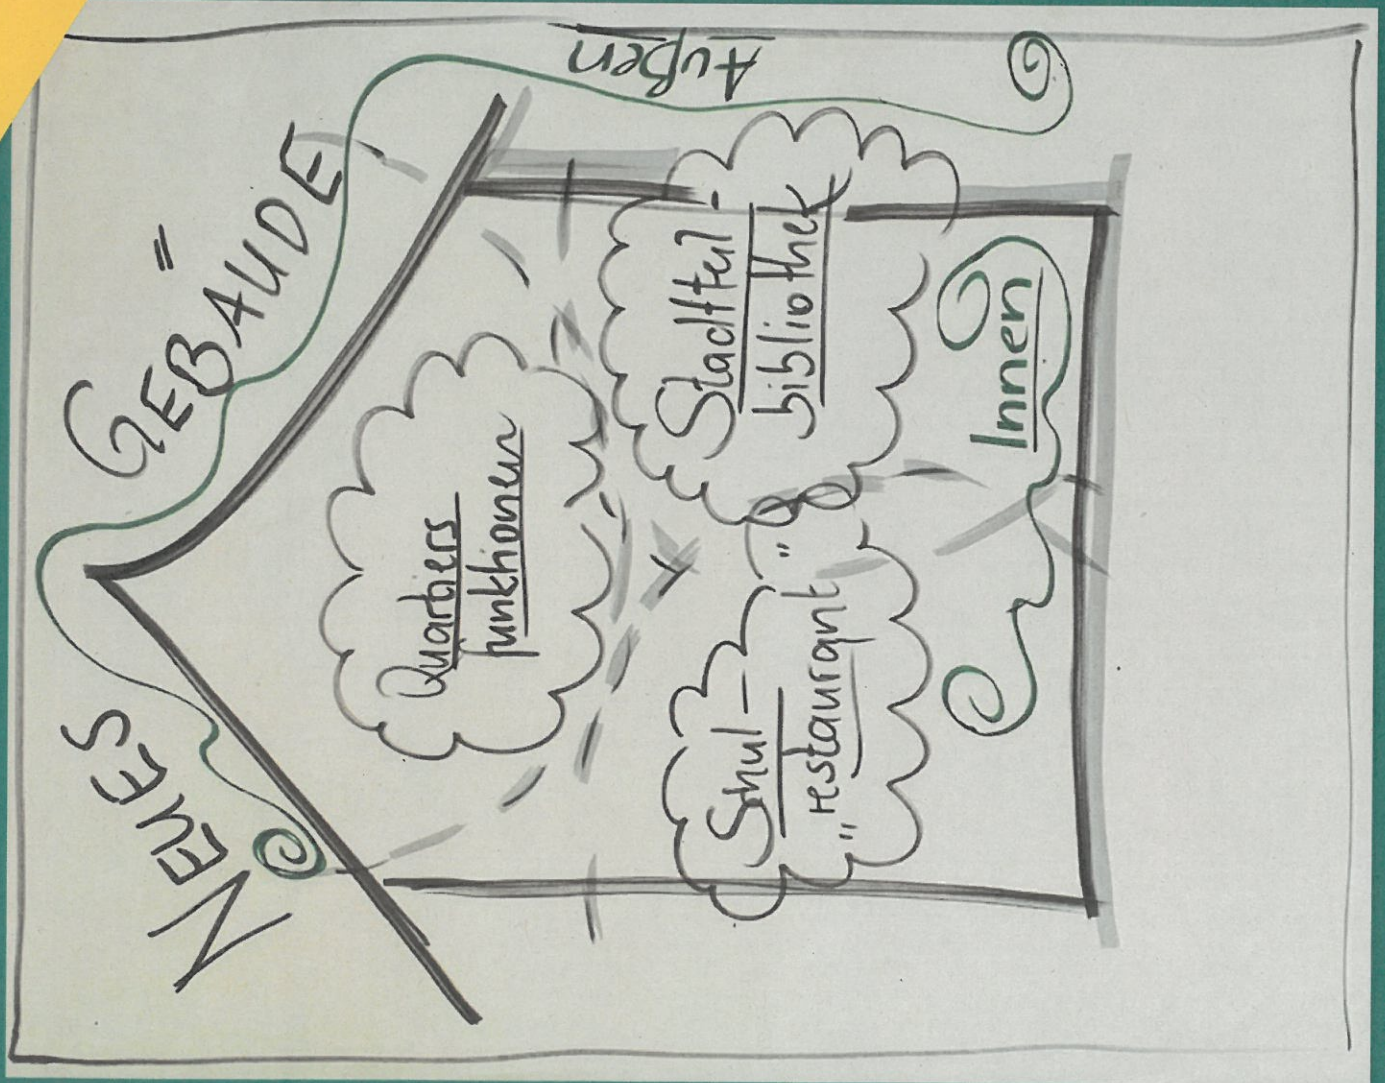 NEUES GEBÄUDE
Außen
Quartiers
funktionen
Stadtteil-
bibliothek
Schul-
"restaurant"
Innen